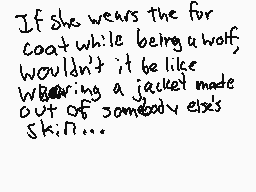 If she wears the fur
coat while being a wolf,
wouldn't it be like
wearing a jacket made
out of somebody else's
skin...